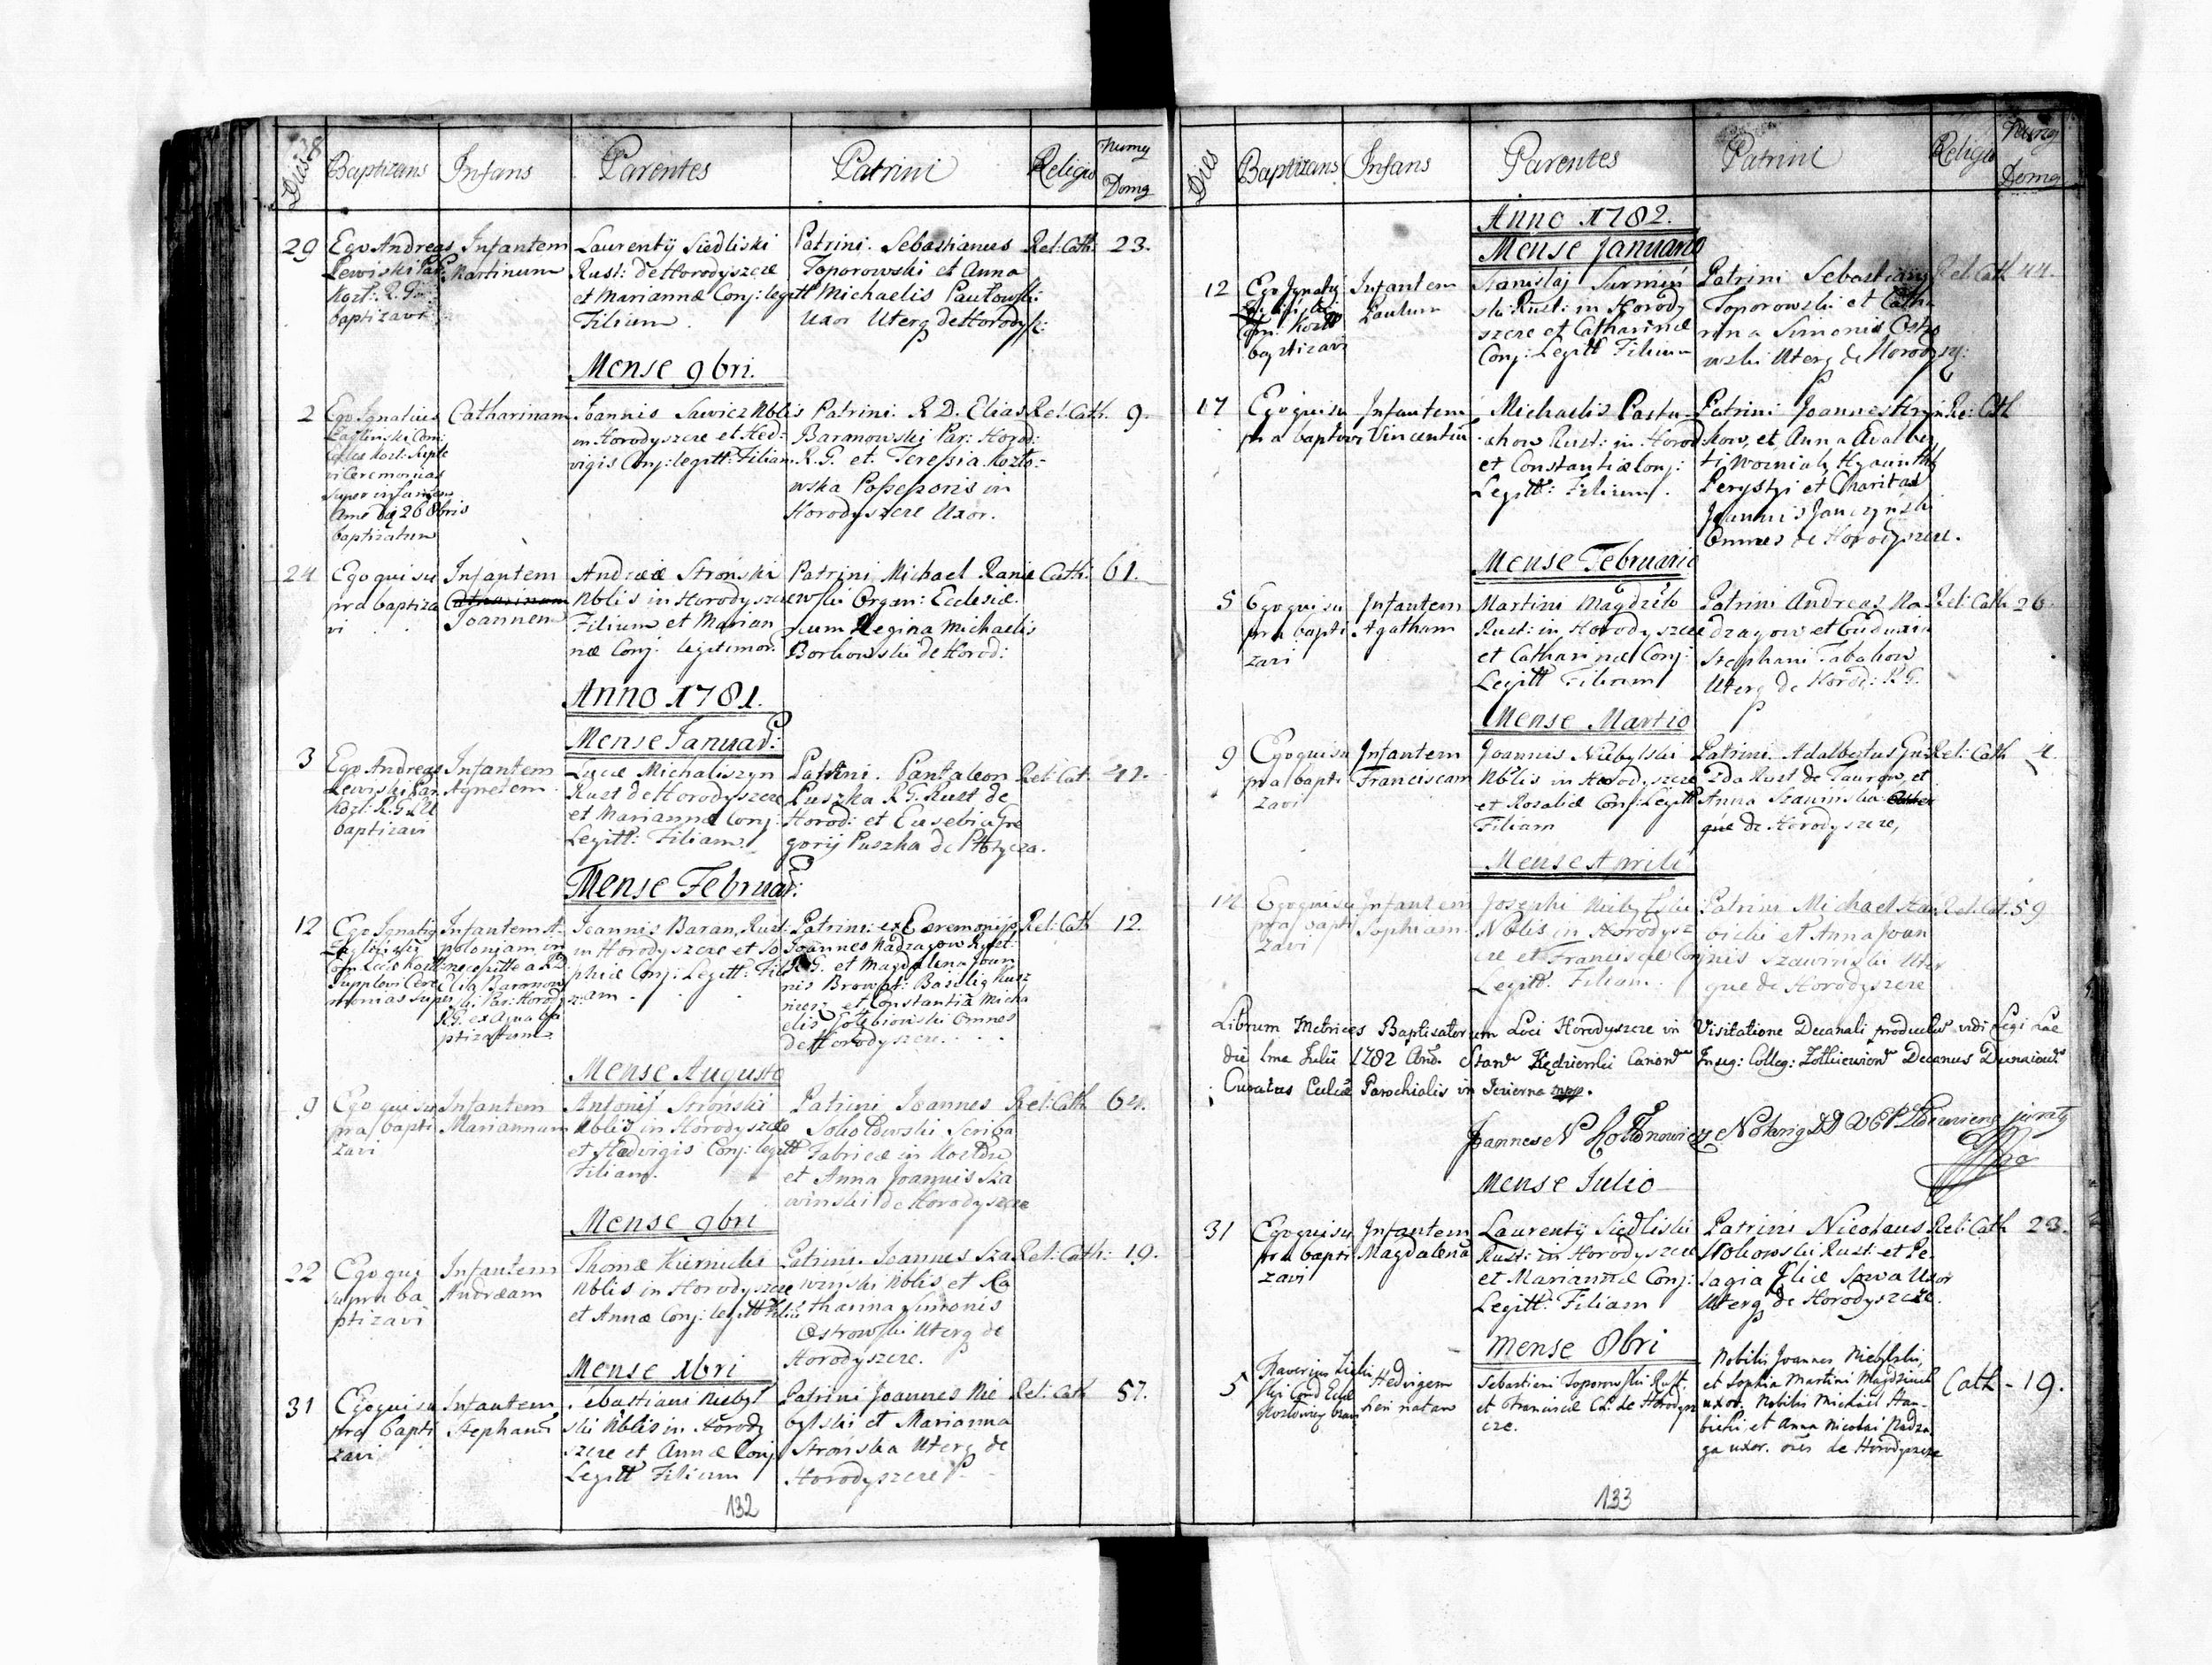 38
Dies Baptizans Infans Parentes Patrini Religio Num9 Dom9
29 Ego Andreas Lewiski Par: Kozl: R. G. baptizavi
Infantem Martinum
Laurentÿ Siedliski
Rust: de Horodyszcze
et Mariannæ Conj: legitt
Filium.
Patrini. Sebastianus
Toporowski et Anna
Michaelis Pautowski
Uxor Uterq de Horodysz:
Rel: Cath: 23.
Mense 9bri.
2 Ego Ignatius
Ceremonias
super infantem
baptizatum
Catharinam
Joannis Sawicz Nblis
in Horodyszcze et Hed-
vigis Conj: legitt: Filiam.
Patrini. R D. Elias
Baranowski Par: Horod:
R. G. et Teressia Kozło-
wska Possessoris in
Horodyszcze Uxor.
Rel: Cath. 9.
24 Ego qui su
pra baptiza
vi
Infantem
Joannem
Andreæ Stronski
Nblis in Horodyszcze
Filium et Marian
næ Conj: legitimor:
Patrini Michael Ranie
wski Organ: Ecclesiæ
cum Regina Michaelis
Borkowski de Horod:
Cath: 61.
Anno 1781.
Mense Januar:
3 Ego Andreas
Lewiski Par.
Kozl: R. G.
baptizavi
Infantem
Agnetem
Lucæ Michaliszyn
Rust de Horodyszcze
et Mariannæ Conj:
Legitt: Filiam.
Patrini. Pantaleon
Puszka R G. Rust de
Horod: et Eusebia Gre
gorij Puszka de Płotycza.
Rel: Cat. 41.
Mense Februar:
12 Ego Ignatig
Supplevi Cere
monias super
Infantem A-
poloniam in
necessitte a R D.
Elia Baranow
ski Par: Horodysz
R G. ex aqua ba
ptizatam
Joannis Baran, Rust.
in Horodyszcze et So
phiæ Conj: Legitt: Fili
am.
Patrini: ex Ceremonijs
Joannes Nadragow Rust.
R G. et Magdalena Joan
nis Browar: Basilig Kusz
nierz et Constantia Micha
elis Gołębiowski Omnes
de Horodyszcze.
Rel: Cath 12.
Mense Augusto
9 Ego qui su
pra bapti
zavi
Infantem
Mariannam
Antonij Stroński
Nblis in Horodyszcze
et Hedvigis Conj: legitt
Filiam.
Patrini Joannes
Sokołowski Scriba
Fabricæ in Kozłow
et Anna Joannis Sza
winski de Horodyszcze
Rel: Cath 64.
Mense 9bri
22 Ego qui
supra ba
ptizavi
Infantem
Andræam
Thomæ Kiernicki
Nblis in Horodyszcze
et Annæ Conj: legitt Filiũ
Patrini. Joannes Sza
wiński Nblis et Ca
tharina Simonis
Ostrowski Uterq de
Horodyszcze.
Rel: Cath: 19.
Mense Xbri
31 Ego qui su
pra bapti
zavi
Infantem
Stephanũ
Sebastiani Niebyl
ski Nblis in Horody
szcze et Annæ Conj
Legitt Filium
Patrini Joannes Nie
bylski et Marianna
Stronska Uterq de
Horodyszcze
Rel: Cath 57.
132
Dies Baptizans Infans Parentes Patrini Religio Num9 Dom9
Anno 1782.
Mense Januario
12 Ego Ignatig
baptizavi
Infantem
Paulum
Stanislaj Surmiń
ski Rust: in Horody
szcze et Catharinæ
Conj: Legitt Filium
Patrini Sebastiang
Toporowski et Catha
rina Simonis Ostro
wski Uterq de Horodysz:
Rel: Cath 44.
17 Ego qui su
pra baptizavi
Infantem
Vincentiũ
Michaelis Pastu-
chow Rust: in Horod
et Constantiæ Conj:
Legitt: Filium.
Patrini Joannes Hryn
kow, et Anna Adalber
ti Wozniak Hyacinthg
Perystyi et Charitas
Joannis Janczynski
Omnes de Horodyszcze.
Re: Cath
Mense Februario
5 Ego qui su
pra bapti
zavi
Infantem
Agatham
Martini Magdziak
Rust: in Horodyszcze
et Catharinæ Conj:
Legitt Filiam
Patrini Andreas Na
dragow et Eudoxia
Stephani Tabakow
Uterq de Horod: R G.
Rel: Cath 26.
Mense Martio
9 Ego qui su
pra bapti
zavi
Infantem
Franciscam
Joannis Niebylski
Nblis in Horodyszcze
et Rosaliæ Conj: Legitt
Filiam
Patrini. Adalbertus Gni
zda Rust de Taurow, et
Anna Szawinska
que de Horodyszcze,
Rel: Cath 4.
Mense Aprili
14 Ego qui su
pra bapti
zavi
Infantem
Sophiam
Josephi Niebylski
Nblis in Horodysz
cze et Franciscæ Conj
Legitt. Filiam.
Patrini Michael Han
bicki et Anna Joan
nis Szawinski Uter
que de Horodyszcze
Rel: Cat. 59
Librum Metrices Baptisatorum Loci Horodyszcze in Visitatione Decanali productũ vidi Legi
die 1ma Julii 1782 Ano. Kędzierski Canonus Insig: Colleg: Zołkieviens Decanus
Curatus Eccliæ Parochialis in Jezierna mpp.
Joannes N
Mense Julio
31 Ego qui su
pra bapti
zavi
Infantem
Magdalenã
Laurentÿ Siedliski
Rust: in Horodyszcze
et Mariannæ Conj:
Legitt: Filiam
Patrini Nicolaus
Rust: et Pe-
lagia Eliæ Sowa Uxor
Uterq de Horodyszcze.
Rel: Cath 23.
Mense 8bri
5 Xaverius
Hedvigem
heri natam
Sebastiani Toporowski Rust.
et Franciscæ C. L. de Horodysz
cze.
Nobilis Joannes Niebylski,
et Sophia Martini Magdziak
uxor. Nobilis Michael Han-
bicki, et Anna Nicolai Nadra
ga uxor. oẽs de Horodyszcze
Cath - 19.
133